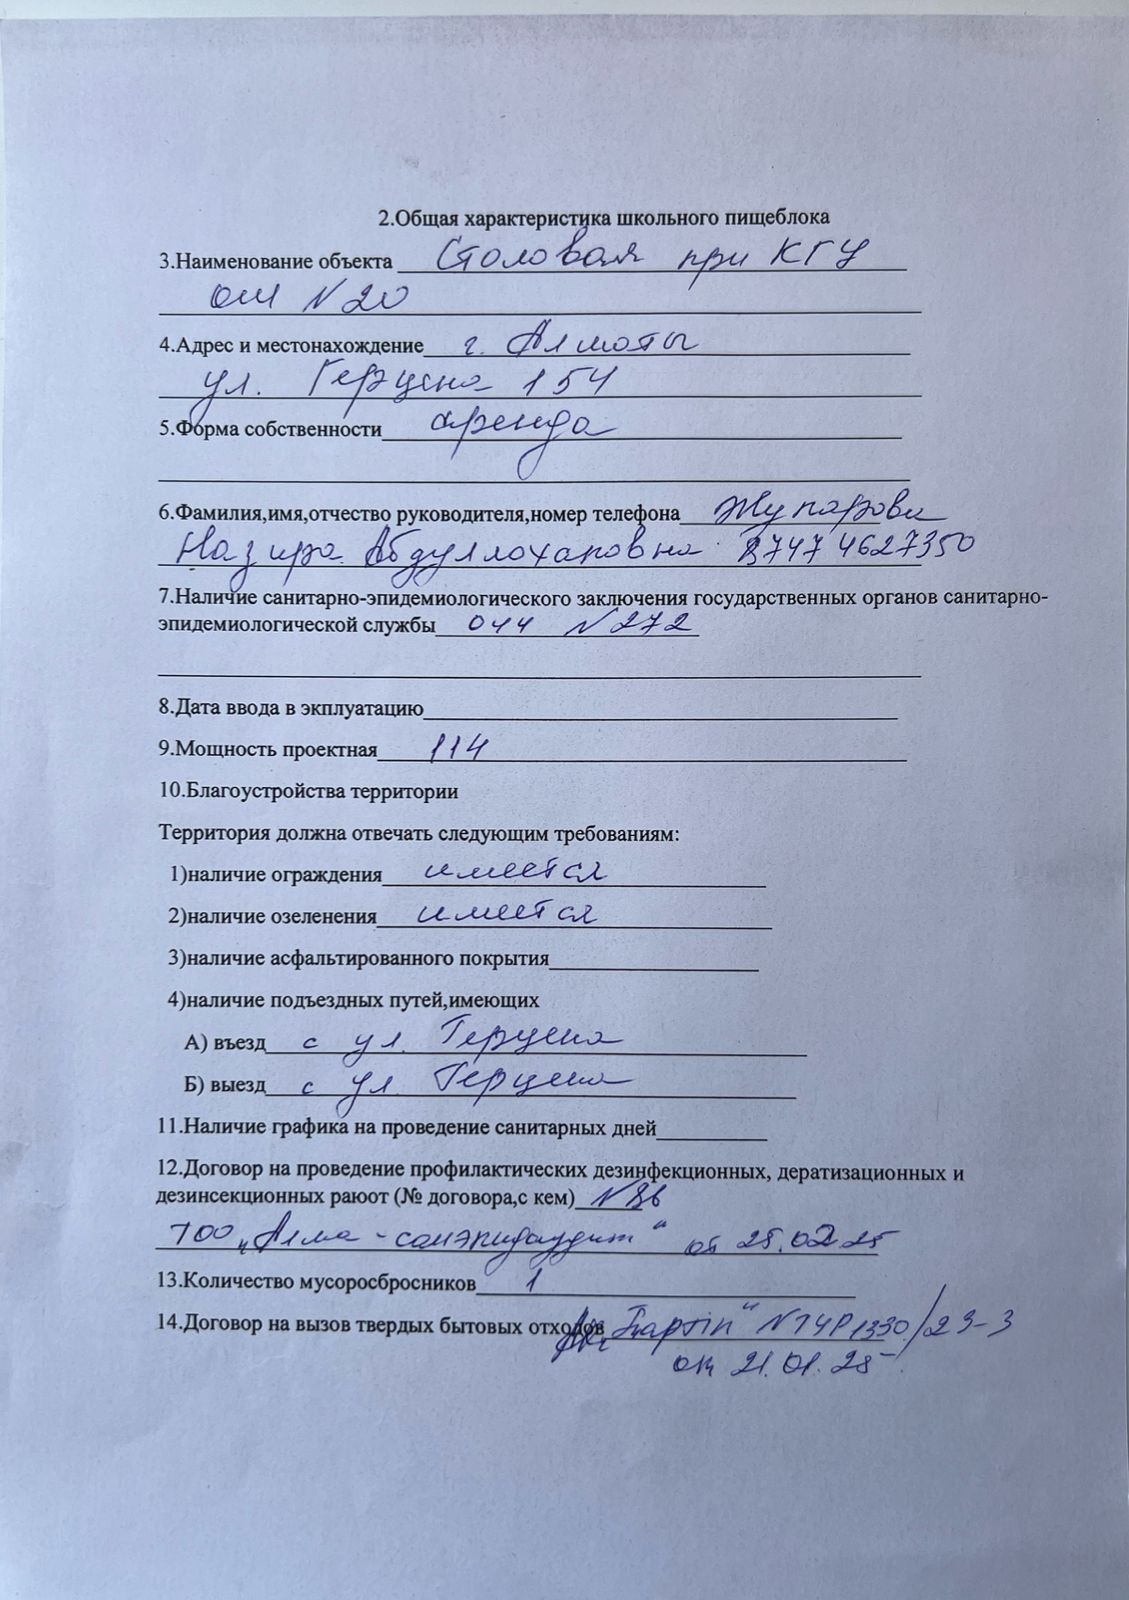 2.Общая характеристика школьного пищеблока
3.Наименование объекта Столовая при КГУ
ОШ N 20
4.Адрес и местонахождение г. Алматы
ул. Герцена 154
5.Форма собственности аренда
6.Фамилия,имя,отчество руководителя,номер телефона Жупарова
Назира Абдуллохаповна 87474627350
7.Наличие санитарно-эпидемиологического заключения государственных органов санитарно-
эпидемиологической службы 044 N 272
8.Дата ввода в экплуатацию
9.Мощность проектная 114
10.Благоустройства территории
Территория должна отвечать следующим требованиям:
1)наличие ограждения имеется
2)наличие озеленения имеется
3)наличие асфальтированного покрытия
4)наличие подъездных путей,имеющих
А) въезд с ул. Герцена
Б) выезд с ул. Герцена
11.Наличие графика на проведение санитарных дней
12.Договор на проведение профилактических дезинфекционных, дератизационных и
дезинсекционных раюот (№ договора,с кем) N 86
ТОО „Алма-санэпидаудит“ от 25.02.25
13.Количество мусоросбросников 1
14.Договор на вызов твердых бытовых отходов „Тартіп“ N ТЧР1330/23-3
от 21.01.25